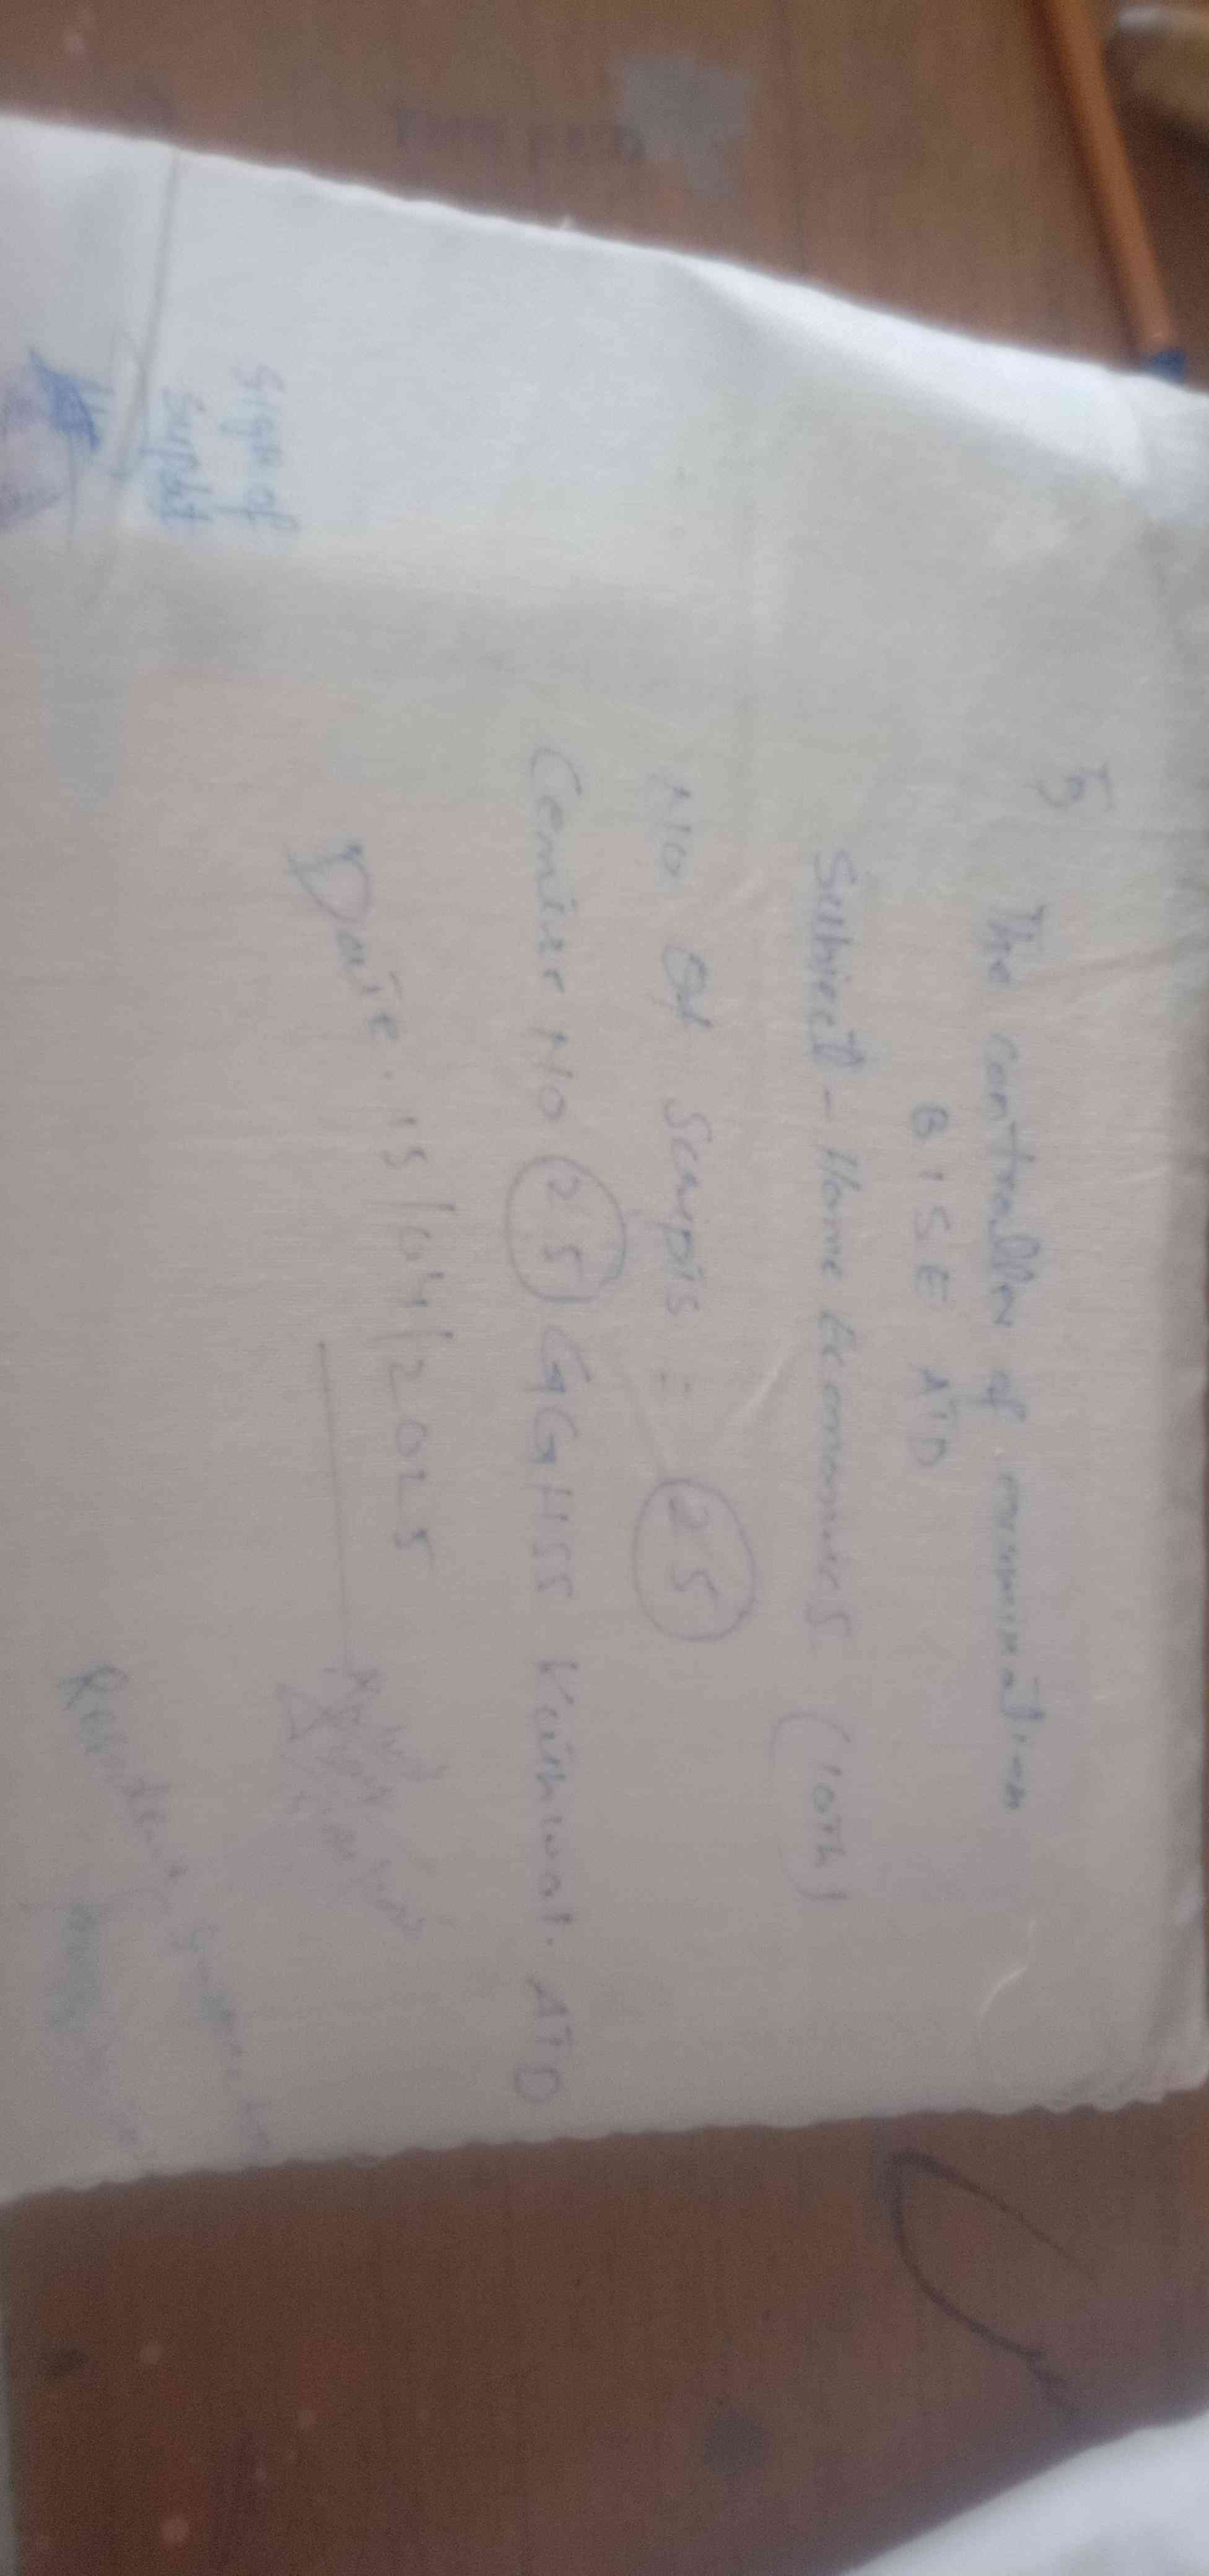 The controller of examination
BISE ATD
Subject - Home Economics (10th)
No of Scripts = 25
Center No 251 GGHSS Kuthwal. ATD
Date. 15/04/2025
Sign of
Supdt